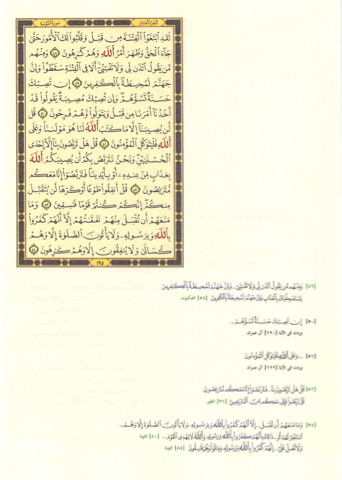 الجزء العاشر سورة التوبة
لَقَدِ ٱبْتَغَوُا۟ ٱلْفِتْنَةَ مِن قَبْلُ وَقَلَّبُوا۟ لَكَ ٱلْأُمُورَ حَتَّىٰ
جَآءَ ٱلْحَقُّ وَظَهَرَ أَمْرُ ٱللَّهِ وَهُمْ كَٰرِهُونَ ٤٨ وَمِنْهُم
مَّن يَقُولُ ٱئْذَن لِّى وَلَا تَفْتِنِّىٓ أَلَا فِى ٱلْفِتْنَةِ سَقَطُوا۟ وَإِنَّ
جَهَنَّمَ لَمُحِيطَةٌۢ بِٱلْكَٰفِرِينَ ٤٩ إِن تُصِبْكَ
حَسَنَةٌ تَسُؤْهُمْ وَإِن تُصِبْكَ مُصِيبَةٌ يَقُولُوا۟ قَدْ
أَخَذْنَآ أَمْرَنَا مِن قَبْلُ وَيَتَوَلَّوا۟ وَّهُمْ فَرِحُونَ ٥٠ قُل
لَّن يُصِيبَنَآ إِلَّا مَا كَتَبَ ٱللَّهُ لَنَا هُوَ مَوْلَىٰنَا وَعَلَى
ٱللَّهِ فَلْيَتَوَكَّلِ ٱلْمُؤْمِنُونَ ٥١ قُلْ هَلْ تَرَبَّصُونَ بِنَآ إِلَّآ إِحْدَى
ٱلْحُسْنَيَيْنِ وَنَحْنُ نَتَرَبَّصُ بِكُمْ أَن يُصِيبَكُمُ ٱللَّهُ
بِعَذَابٍ مِّنْ عِندِهِۦٓ أَوْ بِأَيْدِينَا فَتَرَبَّصُوٓا۟ إِنَّا مَعَكُم
مُّتَرَبِّصُونَ ٥٢ قُلْ أَنفِقُوا۟ طَوْعًا أَوْ كَرْهًا لَّن يُتَقَبَّلَ
مِنكُمْ إِنَّكُمْ كُنتُمْ قَوْمًا فَٰسِقِينَ ٥٣ وَمَا
مَنَعَهُمْ أَن تُقْبَلَ مِنْهُمْ نَفَقَٰتُهُمْ إِلَّآ أَنَّهُمْ كَفَرُوا۟
بِٱللَّهِ وَبِرَسُولِهِۦ وَلَا يَأْتُونَ ٱلصَّلَوٰةَ إِلَّا وَهُمْ
كُسَالَىٰ وَلَا يُنفِقُونَ إِلَّا وَهُمْ كَٰرِهُونَ ٥٤
١٩٥
[٤٩] وَمِنْهُم مَّن يَقُولُ ٱئْذَن لِّى وَلَا تَفْتِنِّىٓ ... وَإِنَّ جَهَنَّمَ لَمُحِيطَةٌۢ بِٱلْكَٰفِرِينَ
يَسْتَعْجِلُونَكَ بِٱلْعَذَابِ وَإِنَّ جَهَنَّمَ لَمُحِيطَةٌۢ بِٱلْكَٰفِرِينَ [٥٤] العنكبوت
[٥٠] إِن تُصِبْكَ حَسَنَةٌ تَسُؤْهُمْ ...
وردت في الآية [١٢٠] آل عمران
[٥١] ... وَعَلَى ٱللَّهِ فَلْيَتَوَكَّلِ ٱلْمُؤْمِنُونَ
وردت في الآية [١٢٢] آل عمران
[٥٢] قُلْ هَلْ تَرَبَّصُونَ بِنَآ ... فَتَرَبَّصُوٓا۟ إِنَّا مَعَكُم مُّتَرَبِّصُونَ
قُلْ تَرَبَّصُوا۟ فَإِنِّى مَعَكُم مِّنَ ٱلْمُتَرَبِّصِينَ [٣١] الطور
[٥٤] وَمَا مَنَعَهُمْ أَن تُقْبَلَ ... إِلَّآ أَنَّهُمْ كَفَرُوا۟ بِٱللَّهِ وَبِرَسُولِهِۦ وَلَا يَأْتُونَ ٱلصَّلَوٰةَ إِلَّا وَهُمْ ...
ٱسْتَغْفِرْ لَهُمْ أَوْ ... ذَٰلِكَ بِأَنَّهُمْ كَفَرُوا۟ بِٱللَّهِ وَرَسُولِهِۦ وَٱللَّهُ لَا يَهْدِى ٱلْقَوْمَ ... [٨٠] التوبة
وَلَا تُصَلِّ عَلَىٰٓ ... إِنَّهُمْ كَفَرُوا۟ بِٱللَّهِ وَرَسُولِهِۦ وَمَاتُوا۟ وَهُمْ فَٰسِقُونَ [٨٤] التوبة